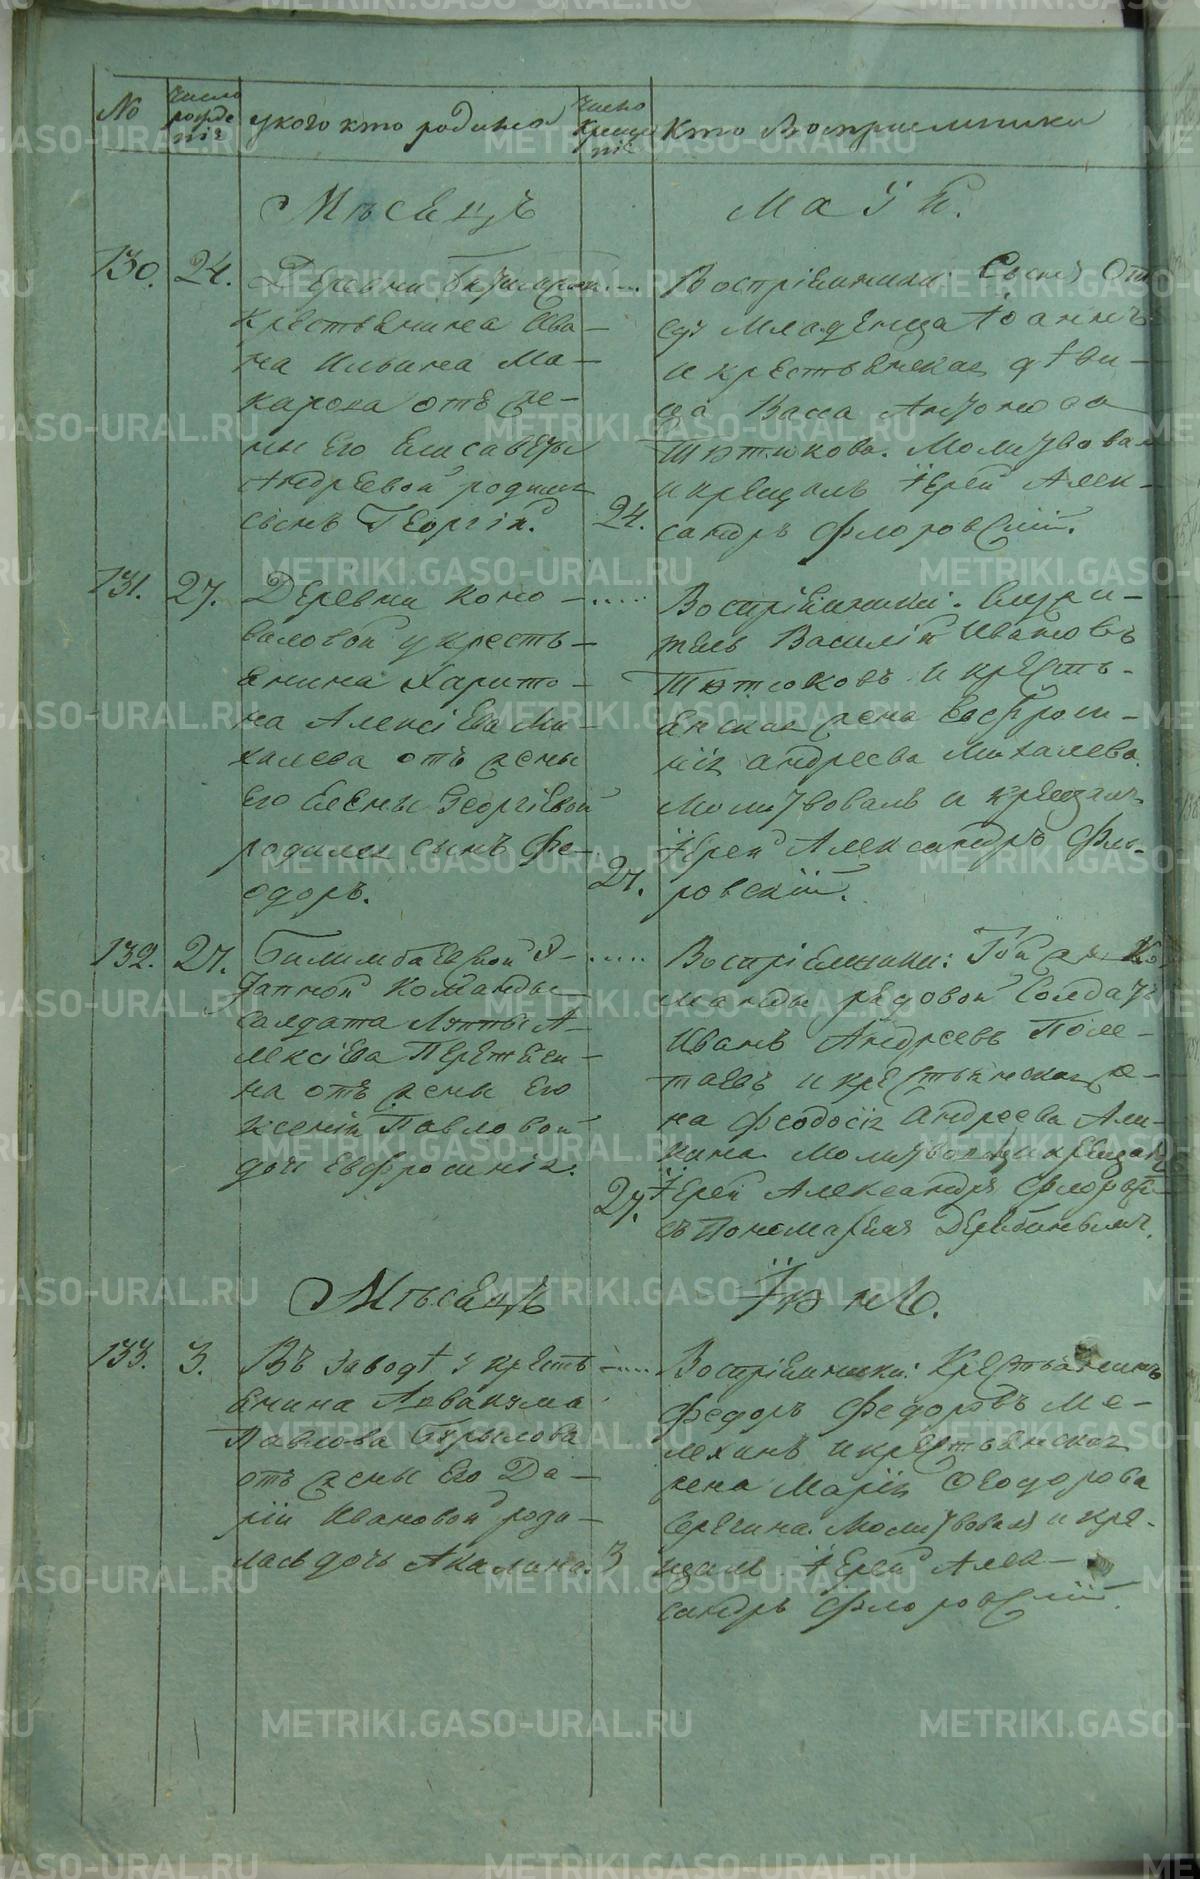 №
Число рожденія
у кого кто родился
Число крещенія
Кто Восприемники
Мѣсецъ
Маїй.
130. 24.
Деревни
крестьянина Ива-
на Ильина Ма-
карова отъ же-
ны Его Елисаветы
Андреевой родился
сынъ Георгій.
24.
Воспріемники: Сынъ От
Младенца Іоаннъ
и крестьянская дѣви-
ца Васса
Молитвовал
и крещалъ Іерей Алек-
сандръ Флоровскій.
131. 27.
Деревни Коно-
валовой у кресть-
янина Харито-
на Алексіева Ми-
халева отъ жены
Его Елены Георгіевой
родился сынъ Фе-
одоръ.
27.
Воспріемники: Служи-
тель Василій Ивановъ
и кресть-
янская жена Евфроси-
нія Андреева Михалева.
Молитвовалъ и крещалъ
Іерей Александръ Фло-
ровскій.
132. 27.
Билимбаевской Э-
тапной Команды
салдата А-
лексіева
на отъ жены Его
Ксеніи Павловой
дочь Евфросинія.
27.
Воспріемники: Той же Ко-
манды рядовой Солдатъ
Иванъ Андреевъ Поле-
таевъ и крестьянская же-
на Феодосія Андреева Али-
кина. Молитвовалъ и крещалъ
Іерей Александръ Флоровскій
съ Пономаремъ Дерябинымъ.
Мѣсецъ
Іюнь.
133. 3.
Въ заводѣ у кресть-
янина Аввакума
Павлова
отъ жены Его Да-
ріи Ивановой роди-
лась дочь Акилина.
3
Воспріемники: Крестьянинъ
Федоръ Федоровъ Ме-
лехинъ и крестьянская
жена Марія Феодорова
Молитвовалъ и кре-
щалъ Іерей Алек-
сандръ Флоровскій.
METRIKI.GASO-URAL.RU